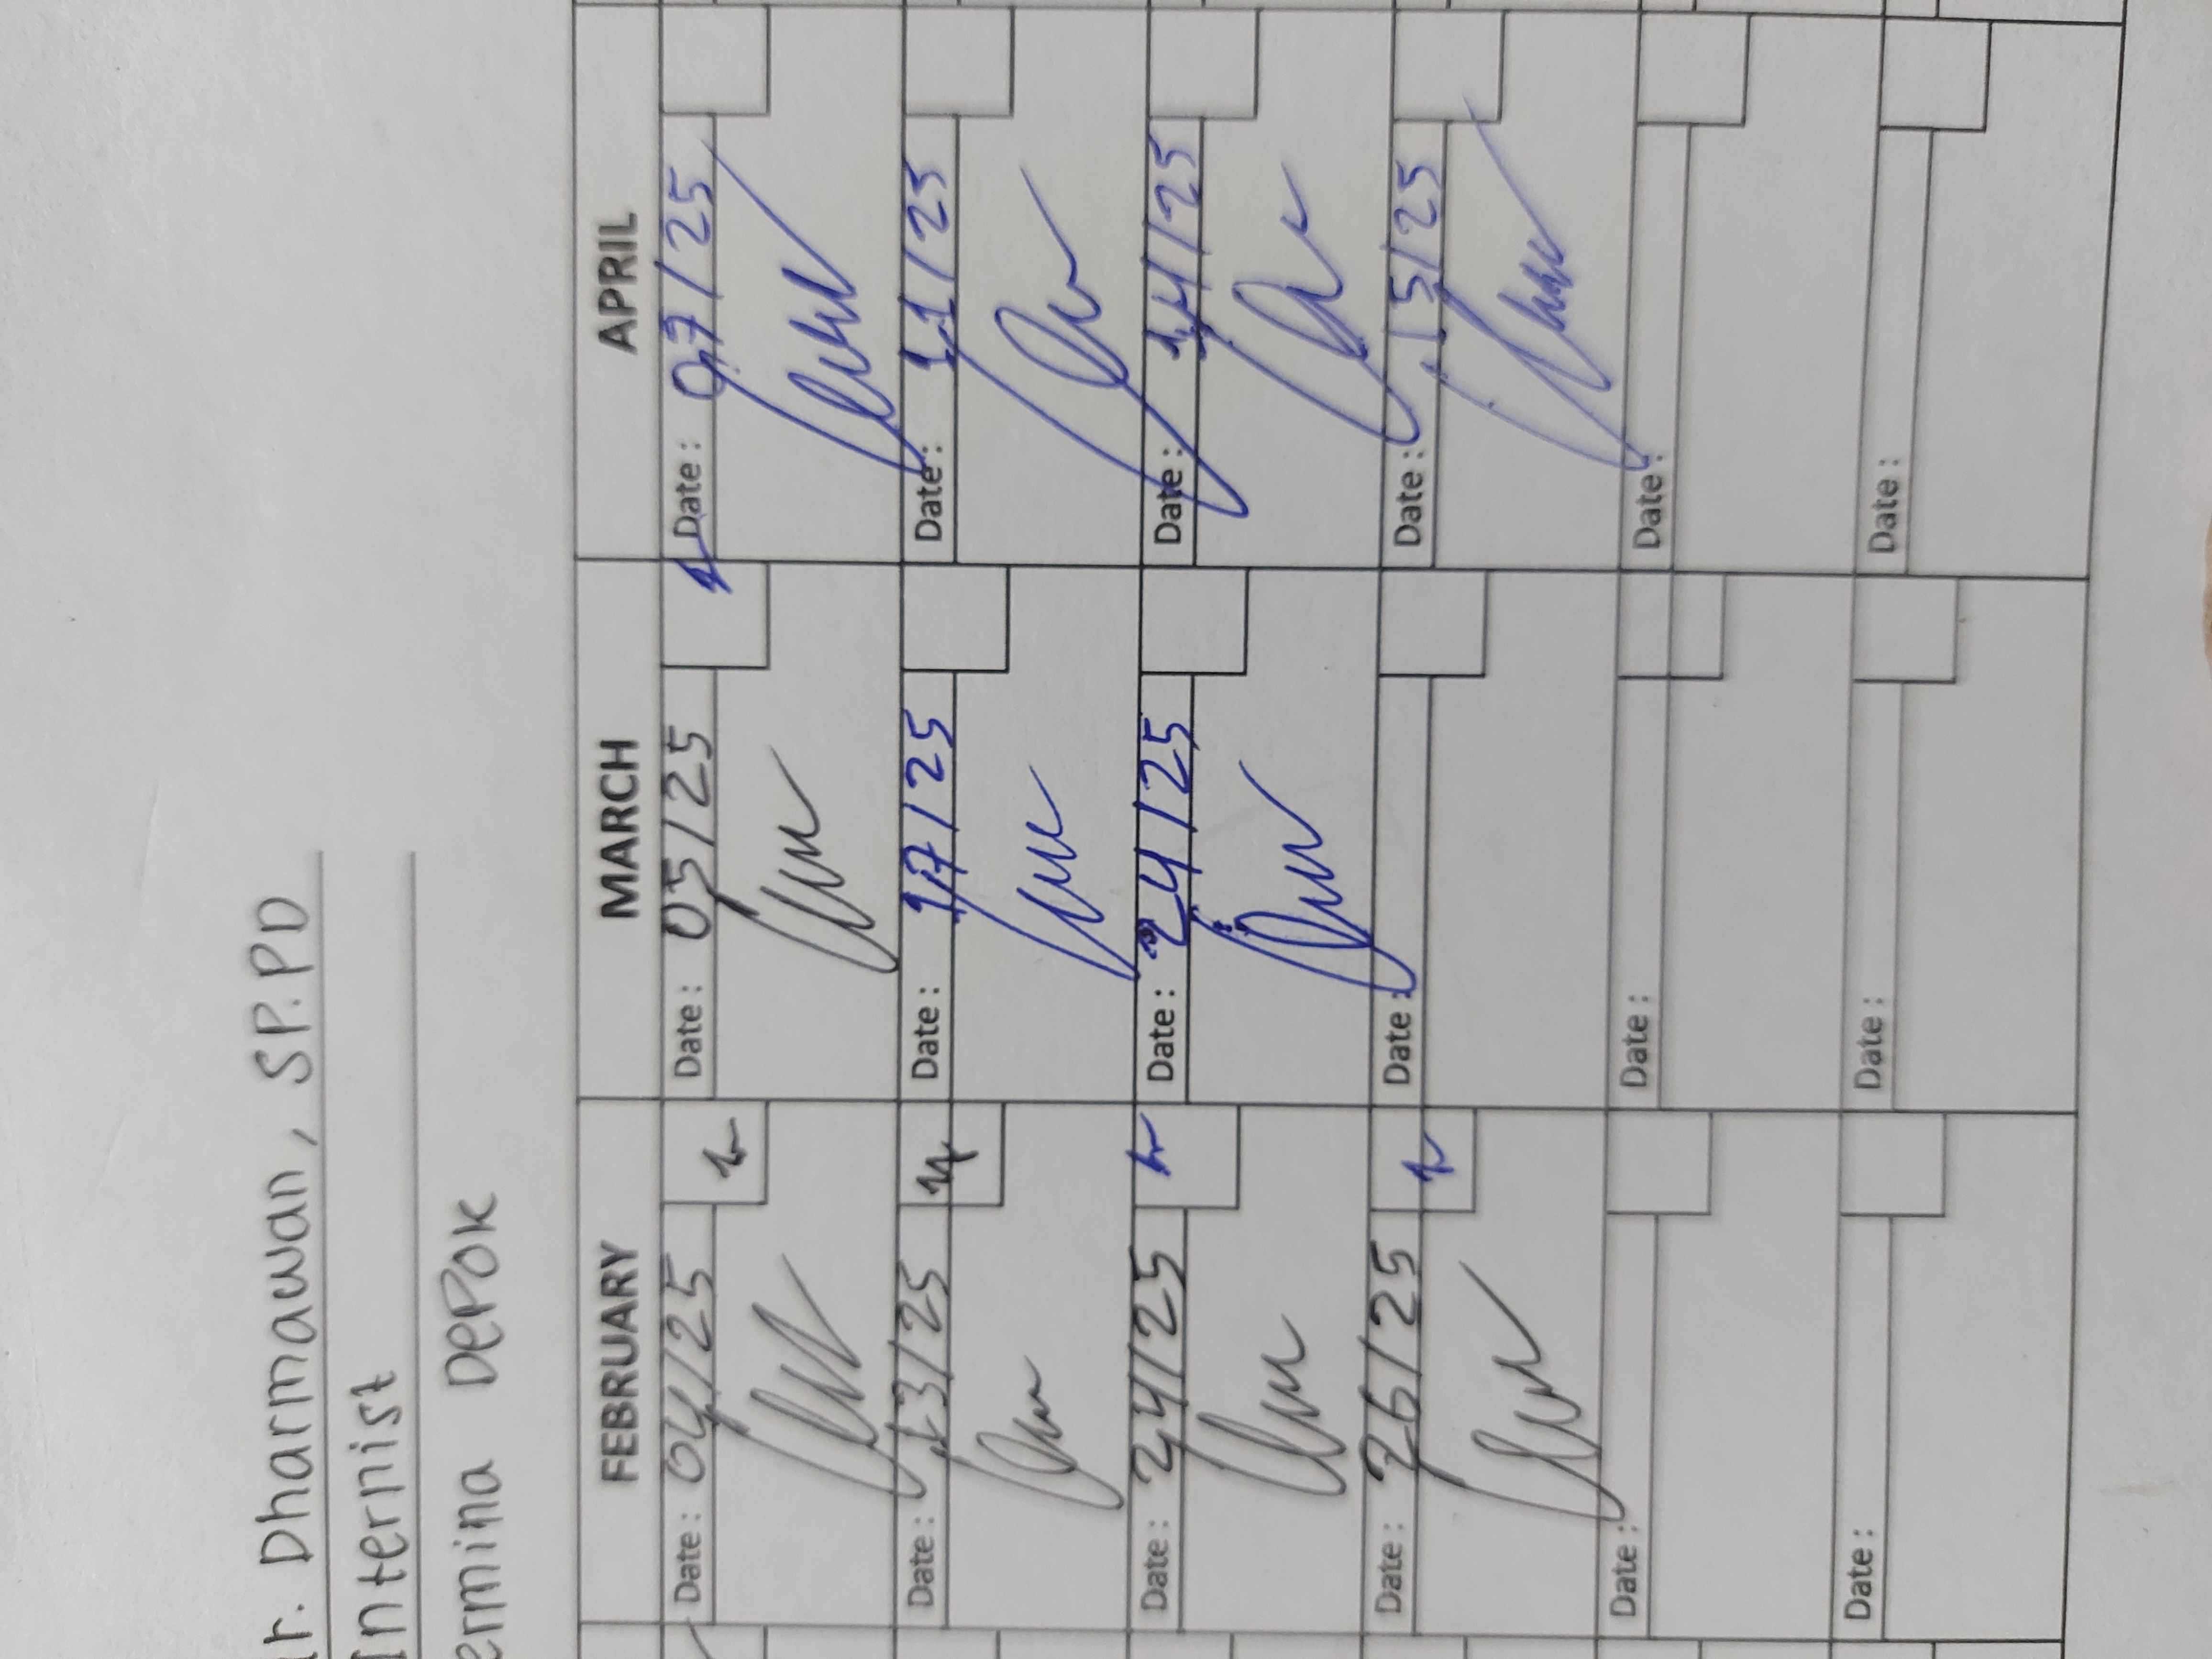 dr. Dharmawan, SP.PD
Internist
ermina DePOK
FEBRUARY MARCH APRIL
Date: 04/25 Date: 05/25 Date: 07/25
Date: 13/25 Date: 17/25 Date: 11/25
Date: 24/25 Date: 24/25 Date: 14/25
Date: 26/25 Date: Date: 15/25
Date: Date: Date:
Date: Date: Date: